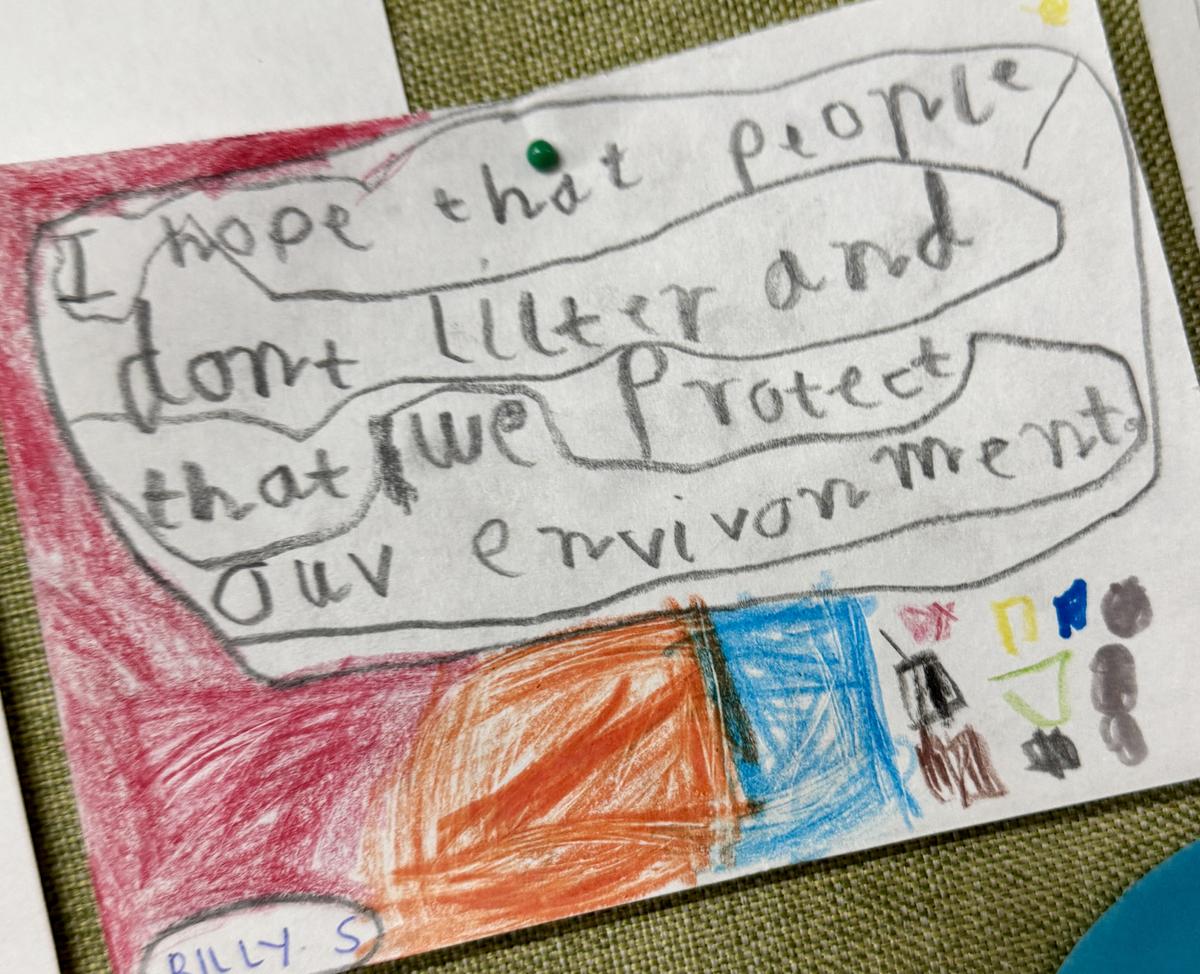 I hope that people
dont litter and
that we Protect
our envivonment.
BILLY S